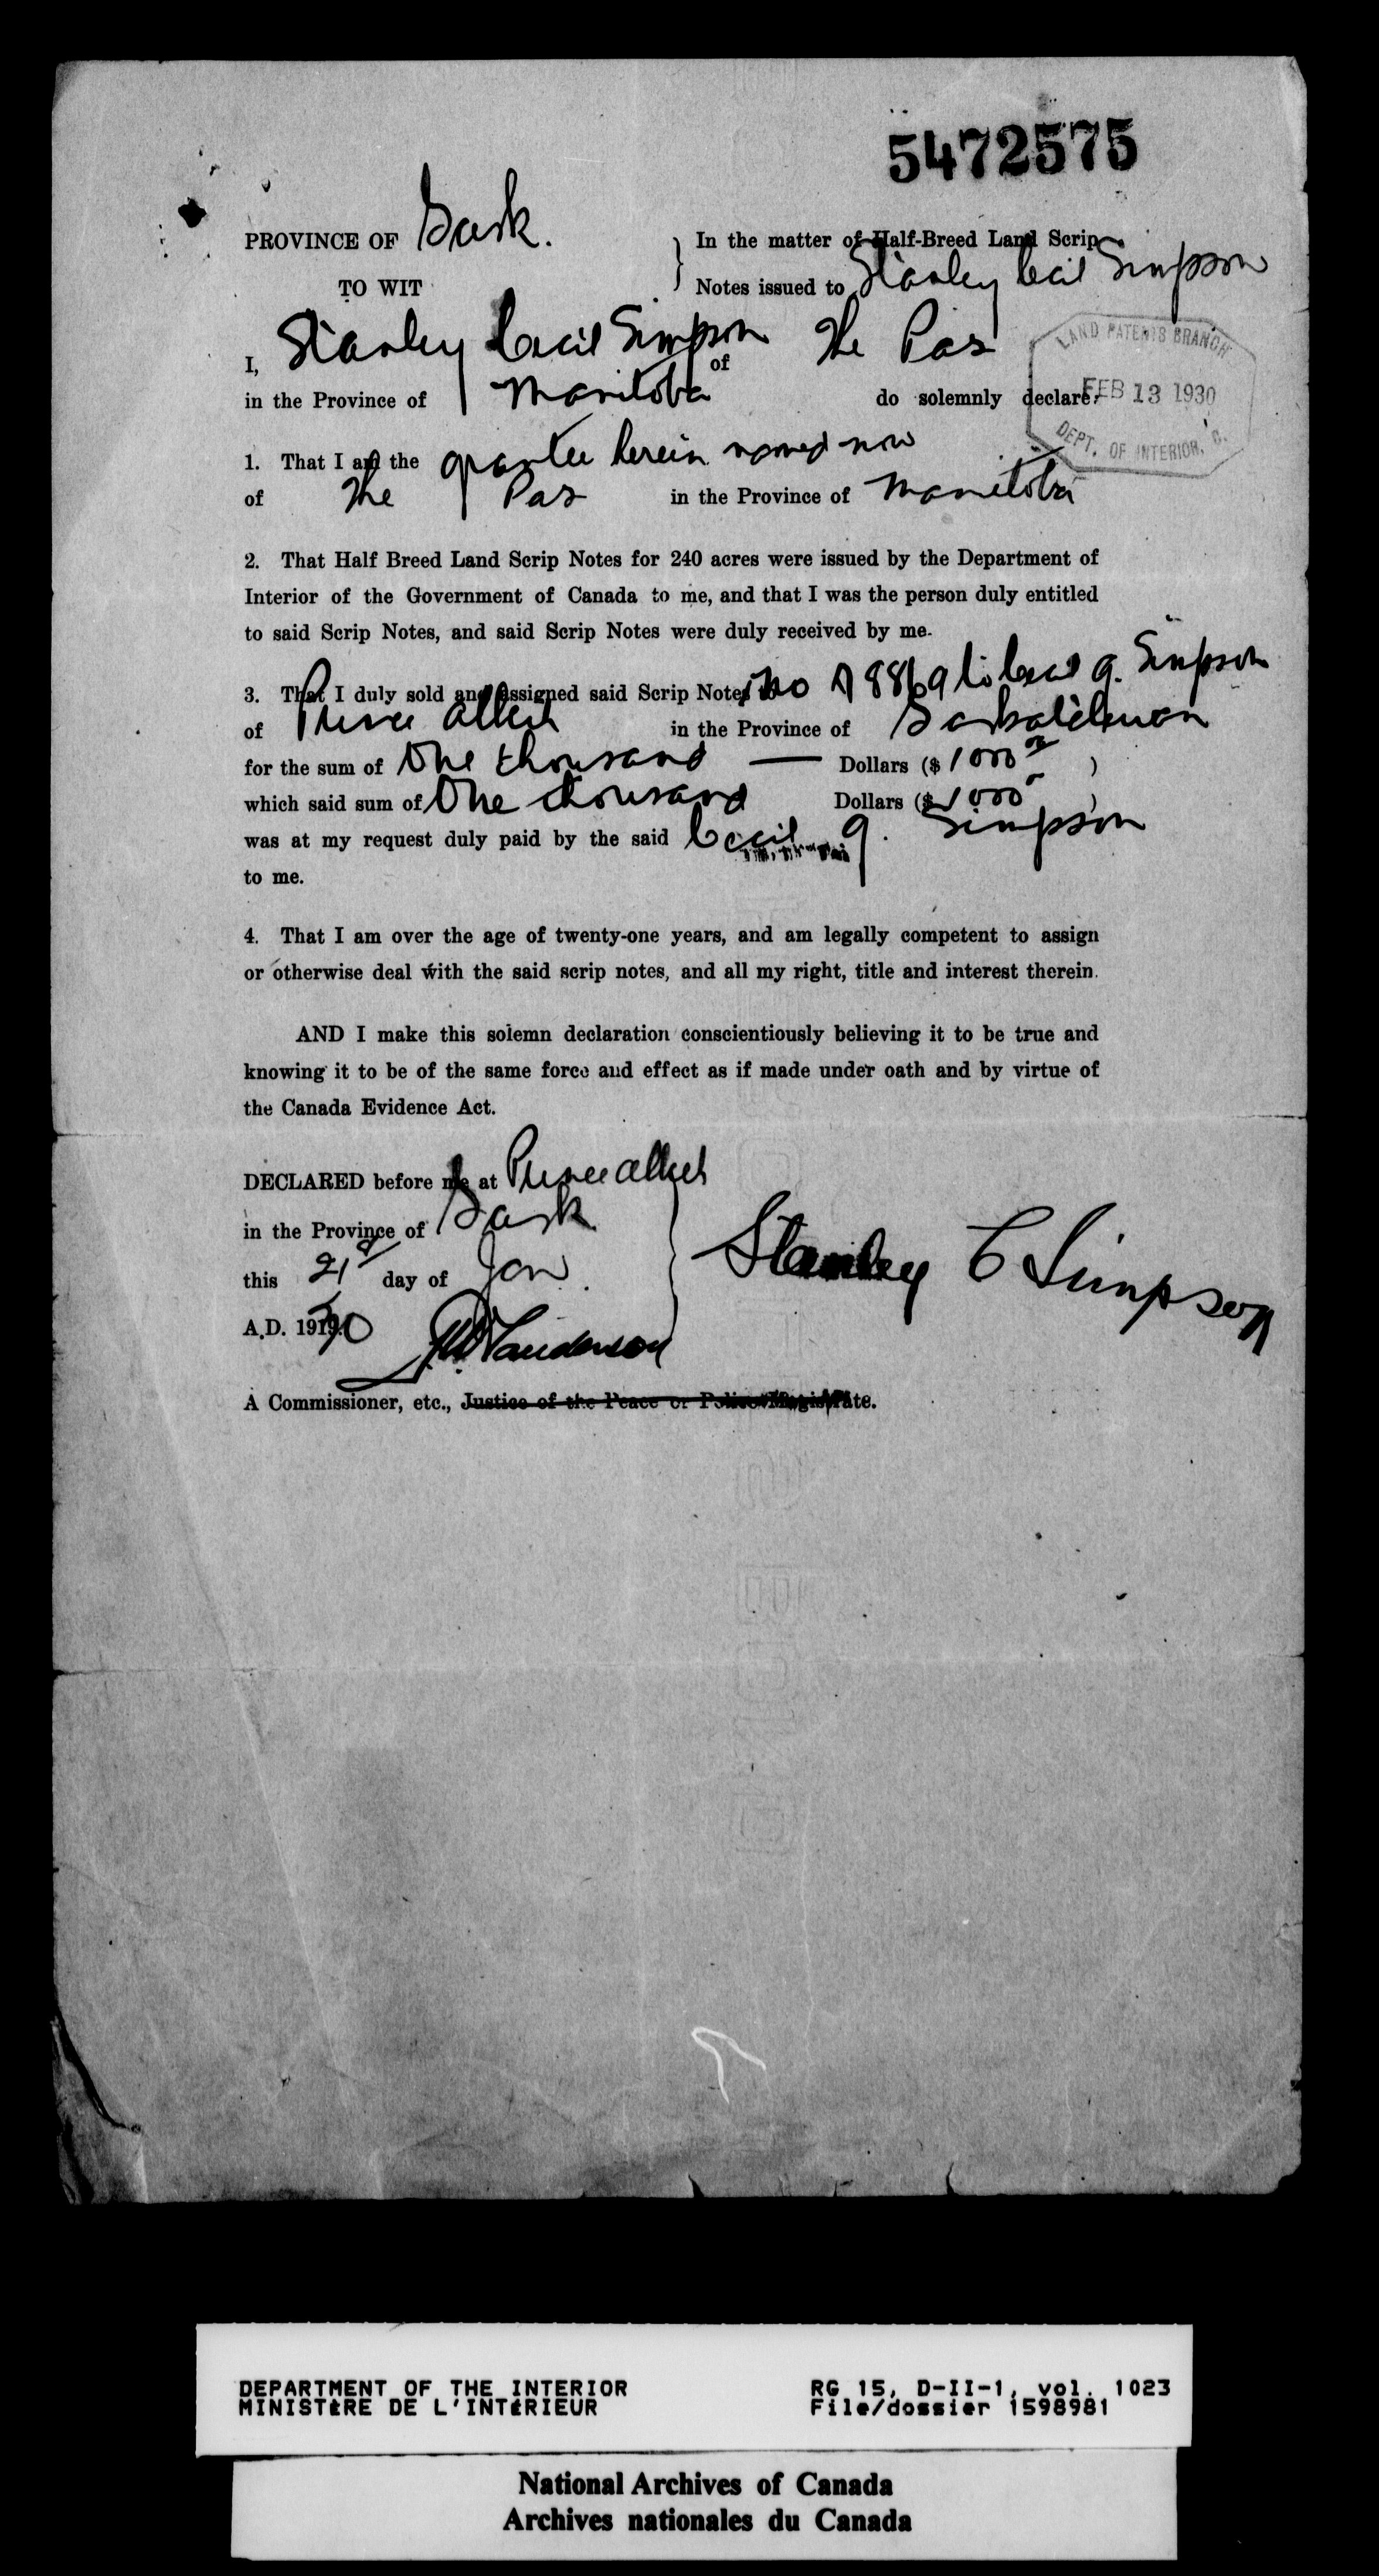 5472575
PROVINCE OF Sask.
TO WIT
In the matter of Half-Breed Land Scrip
Notes issued to Stanley Cecil Simpson
I, Stanley Cecil Simpson of The Pas
in the Province of Manitoba do solemnly declare:
LAND PATENTS BRANCH
FEB 13 1930
DEPT. OF INTERIOR,
1. That I am the grantee herein named now
of The Pas in the Province of Manitoba
2. That Half Breed Land Scrip Notes for 240 acres were issued by the Department of
Interior of the Government of Canada to me, and that I was the person duly entitled
to said Scrip Notes, and said Scrip Notes were duly received by me.
3. That I duly sold and assigned said Scrip Notes No A 8869 to Cecil G. Simpson
of Prince Albert in the Province of Saskatchewan
for the sum of One thousand — Dollars ($1000 )
which said sum of One thousand Dollars ($1000 )
was at my request duly paid by the said Cecil G. Simpson
to me.
4. That I am over the age of twenty-one years, and am legally competent to assign
or otherwise deal with the said scrip notes, and all my right, title and interest therein.
AND I make this solemn declaration conscientiously believing it to be true and
knowing it to be of the same force and effect as if made under oath and by virtue of
the Canada Evidence Act.
DECLARED before me at Prince Albert
in the Province of Sask
this 21st day of Jan.
A.D. 1930
Stanley C Simpson
A Commissioner, etc., Justice of the Peace or Police Magistrate.
DEPARTMENT OF THE INTERIOR RG 15, D-II-1, vol. 1023
MINISTÈRE DE L'INTÉRIEUR File/dossier 1598981
National Archives of Canada
Archives nationales du Canada